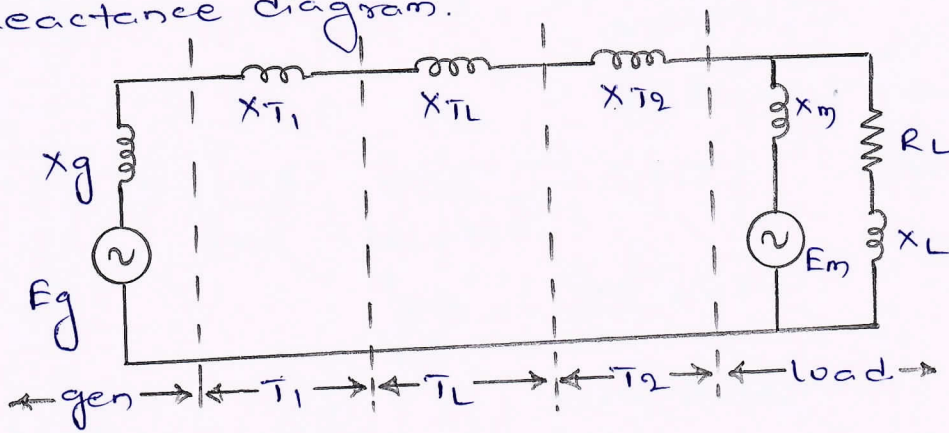 eactance diagram.
XT1 XTL XT2
Xg Xm RL
Eg Em XL
gen T1 TL T2 load